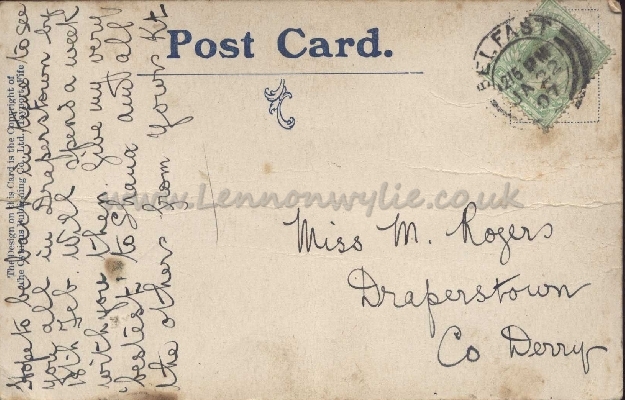 Post Card.
BELFAST
JA 22
07
Miss M. Rogers
Draperstown
Co Derry
The Design on this Card is the Copyright of
the Cynicus Publishing Co., Ltd., Tayport, Fife
Hope to be able to see
you all in Draperstown by
18th Feb. Will spend a week
with you then. Give my very
bestest to and all
the others from yours Kt.
www.Lennonwylie.co.uk